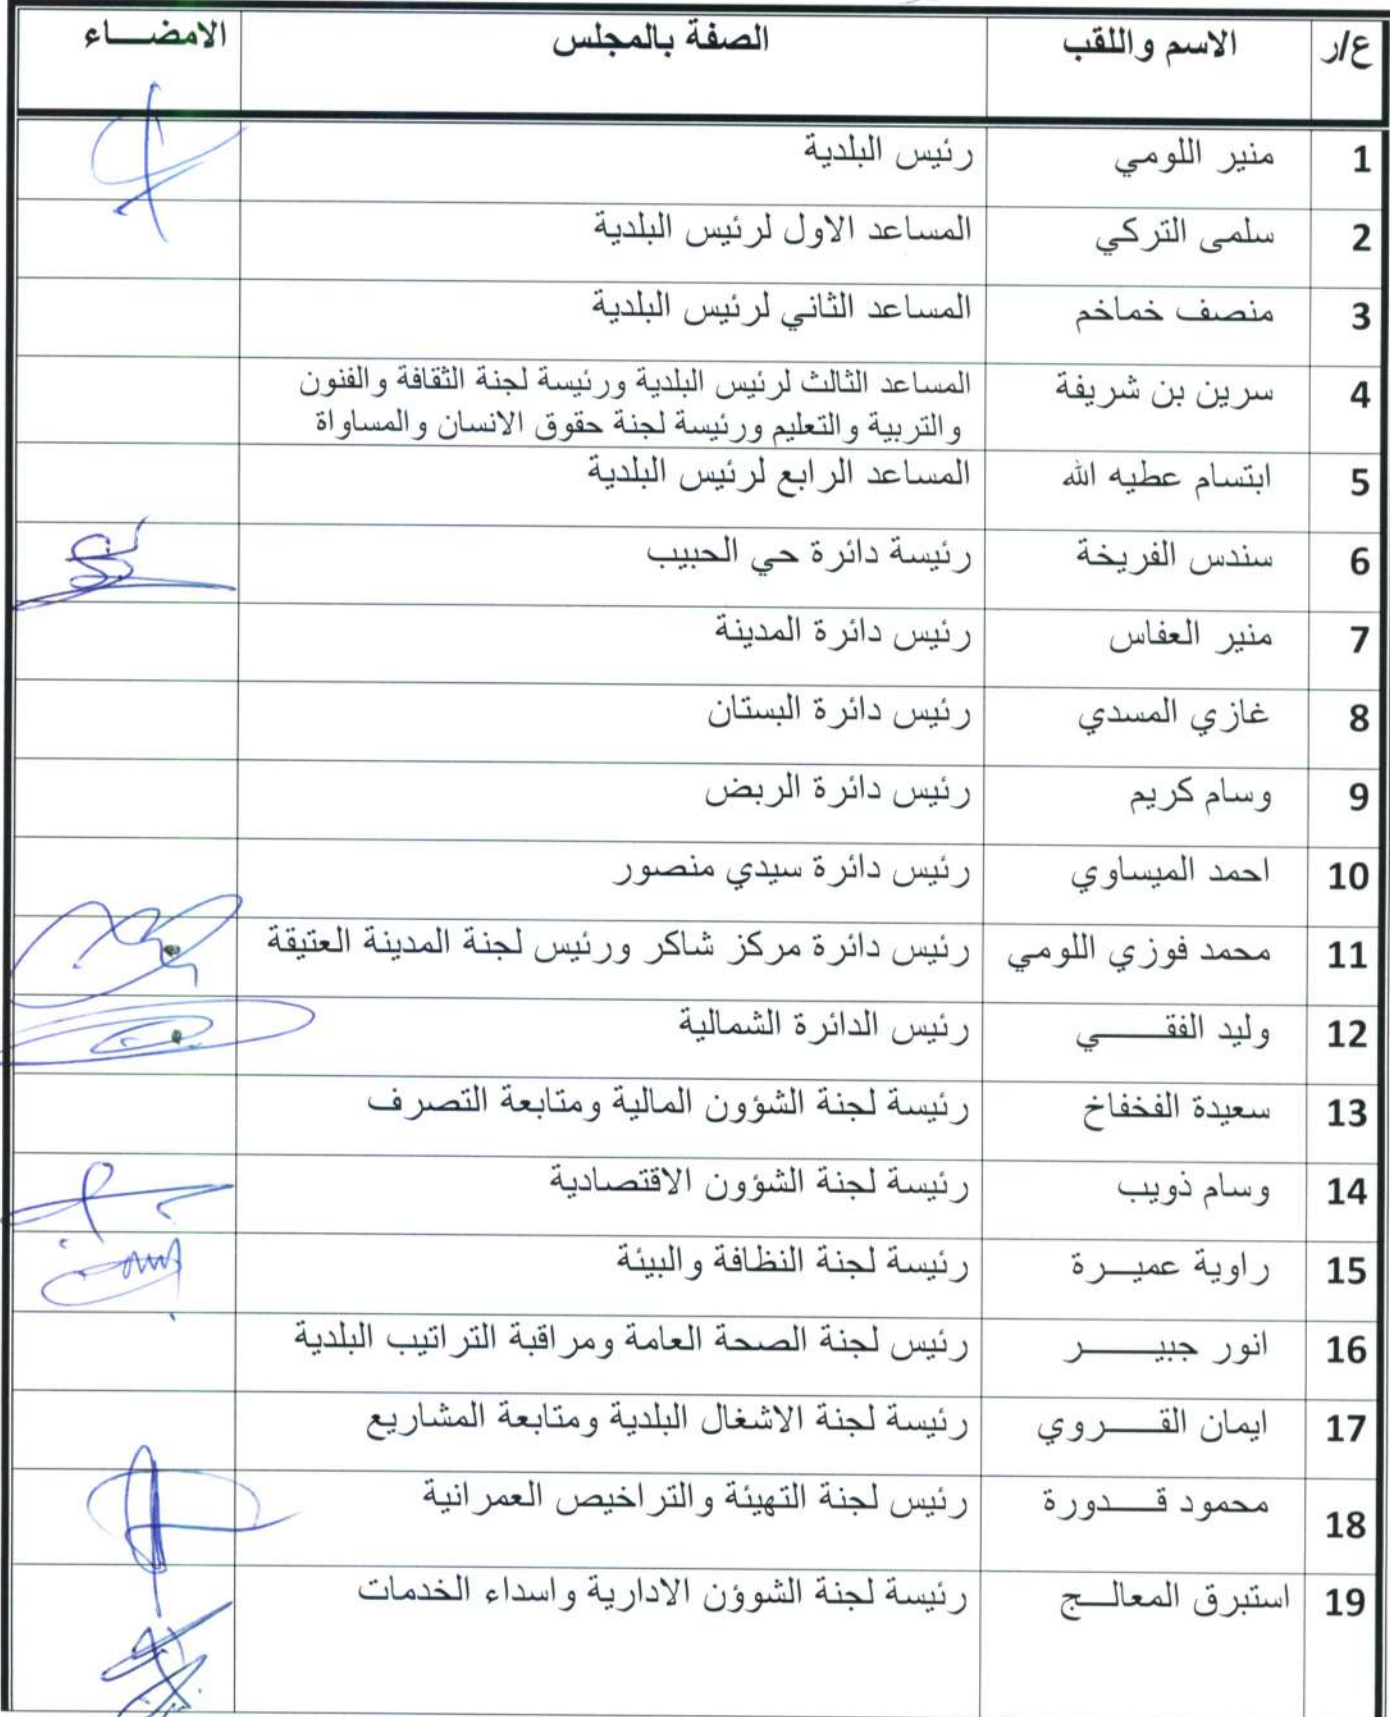 ع/ر الاسم واللقب الصفة بالمجلس الامضـــاء
1 منير اللومي رئيس البلدية
2 سلمى التركي المساعد الاول لرئيس البلدية
3 منصف خماخم المساعد الثاني لرئيس البلدية
4 سرين بن شريفة المساعد الثالث لرئيس البلدية ورئيسة لجنة الثقافة والفنون
والتربية والتعليم ورئيسة لجنة حقوق الانسان والمساواة
5 ابتسام عطيه الله المساعد الرابع لرئيس البلدية
6 سندس الفريخة رئيسة دائرة حي الحبيب
7 منير العفاس رئيس دائرة المدينة
8 غازي المسدي رئيس دائرة البستان
9 وسام كريم رئيس دائرة الربض
10 احمد الميساوي رئيس دائرة سيدي منصور
11 محمد فوزي اللومي رئيس دائرة مركز شاكر ورئيس لجنة المدينة العتيقة
12 وليد الفقـــــي رئيس الدائرة الشمالية
13 سعيدة الفخفاخ رئيسة لجنة الشؤون المالية ومتابعة التصرف
14 وسام ذويب رئيسة لجنة الشؤون الاقتصادية
15 راوية عميـــرة رئيسة لجنة النظافة والبيئة
16 انور جبيـــــر رئيس لجنة الصحة العامة ومراقبة التراتيب البلدية
17 ايمان القـــــروي رئيسة لجنة الاشغال البلدية ومتابعة المشاريع
18 محمود قــــدورة رئيس لجنة التهيئة والتراخيص العمرانية
19 استبرق المعالـــج رئيسة لجنة الشوؤن الادارية واسداء الخدمات